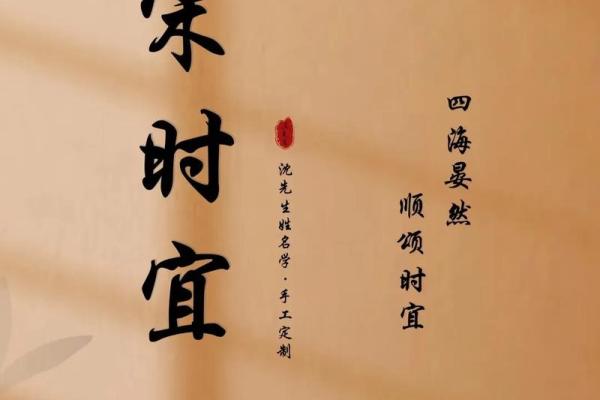 四海晏然
顺颂时宜
沈先生姓名学·手工定制
时宜